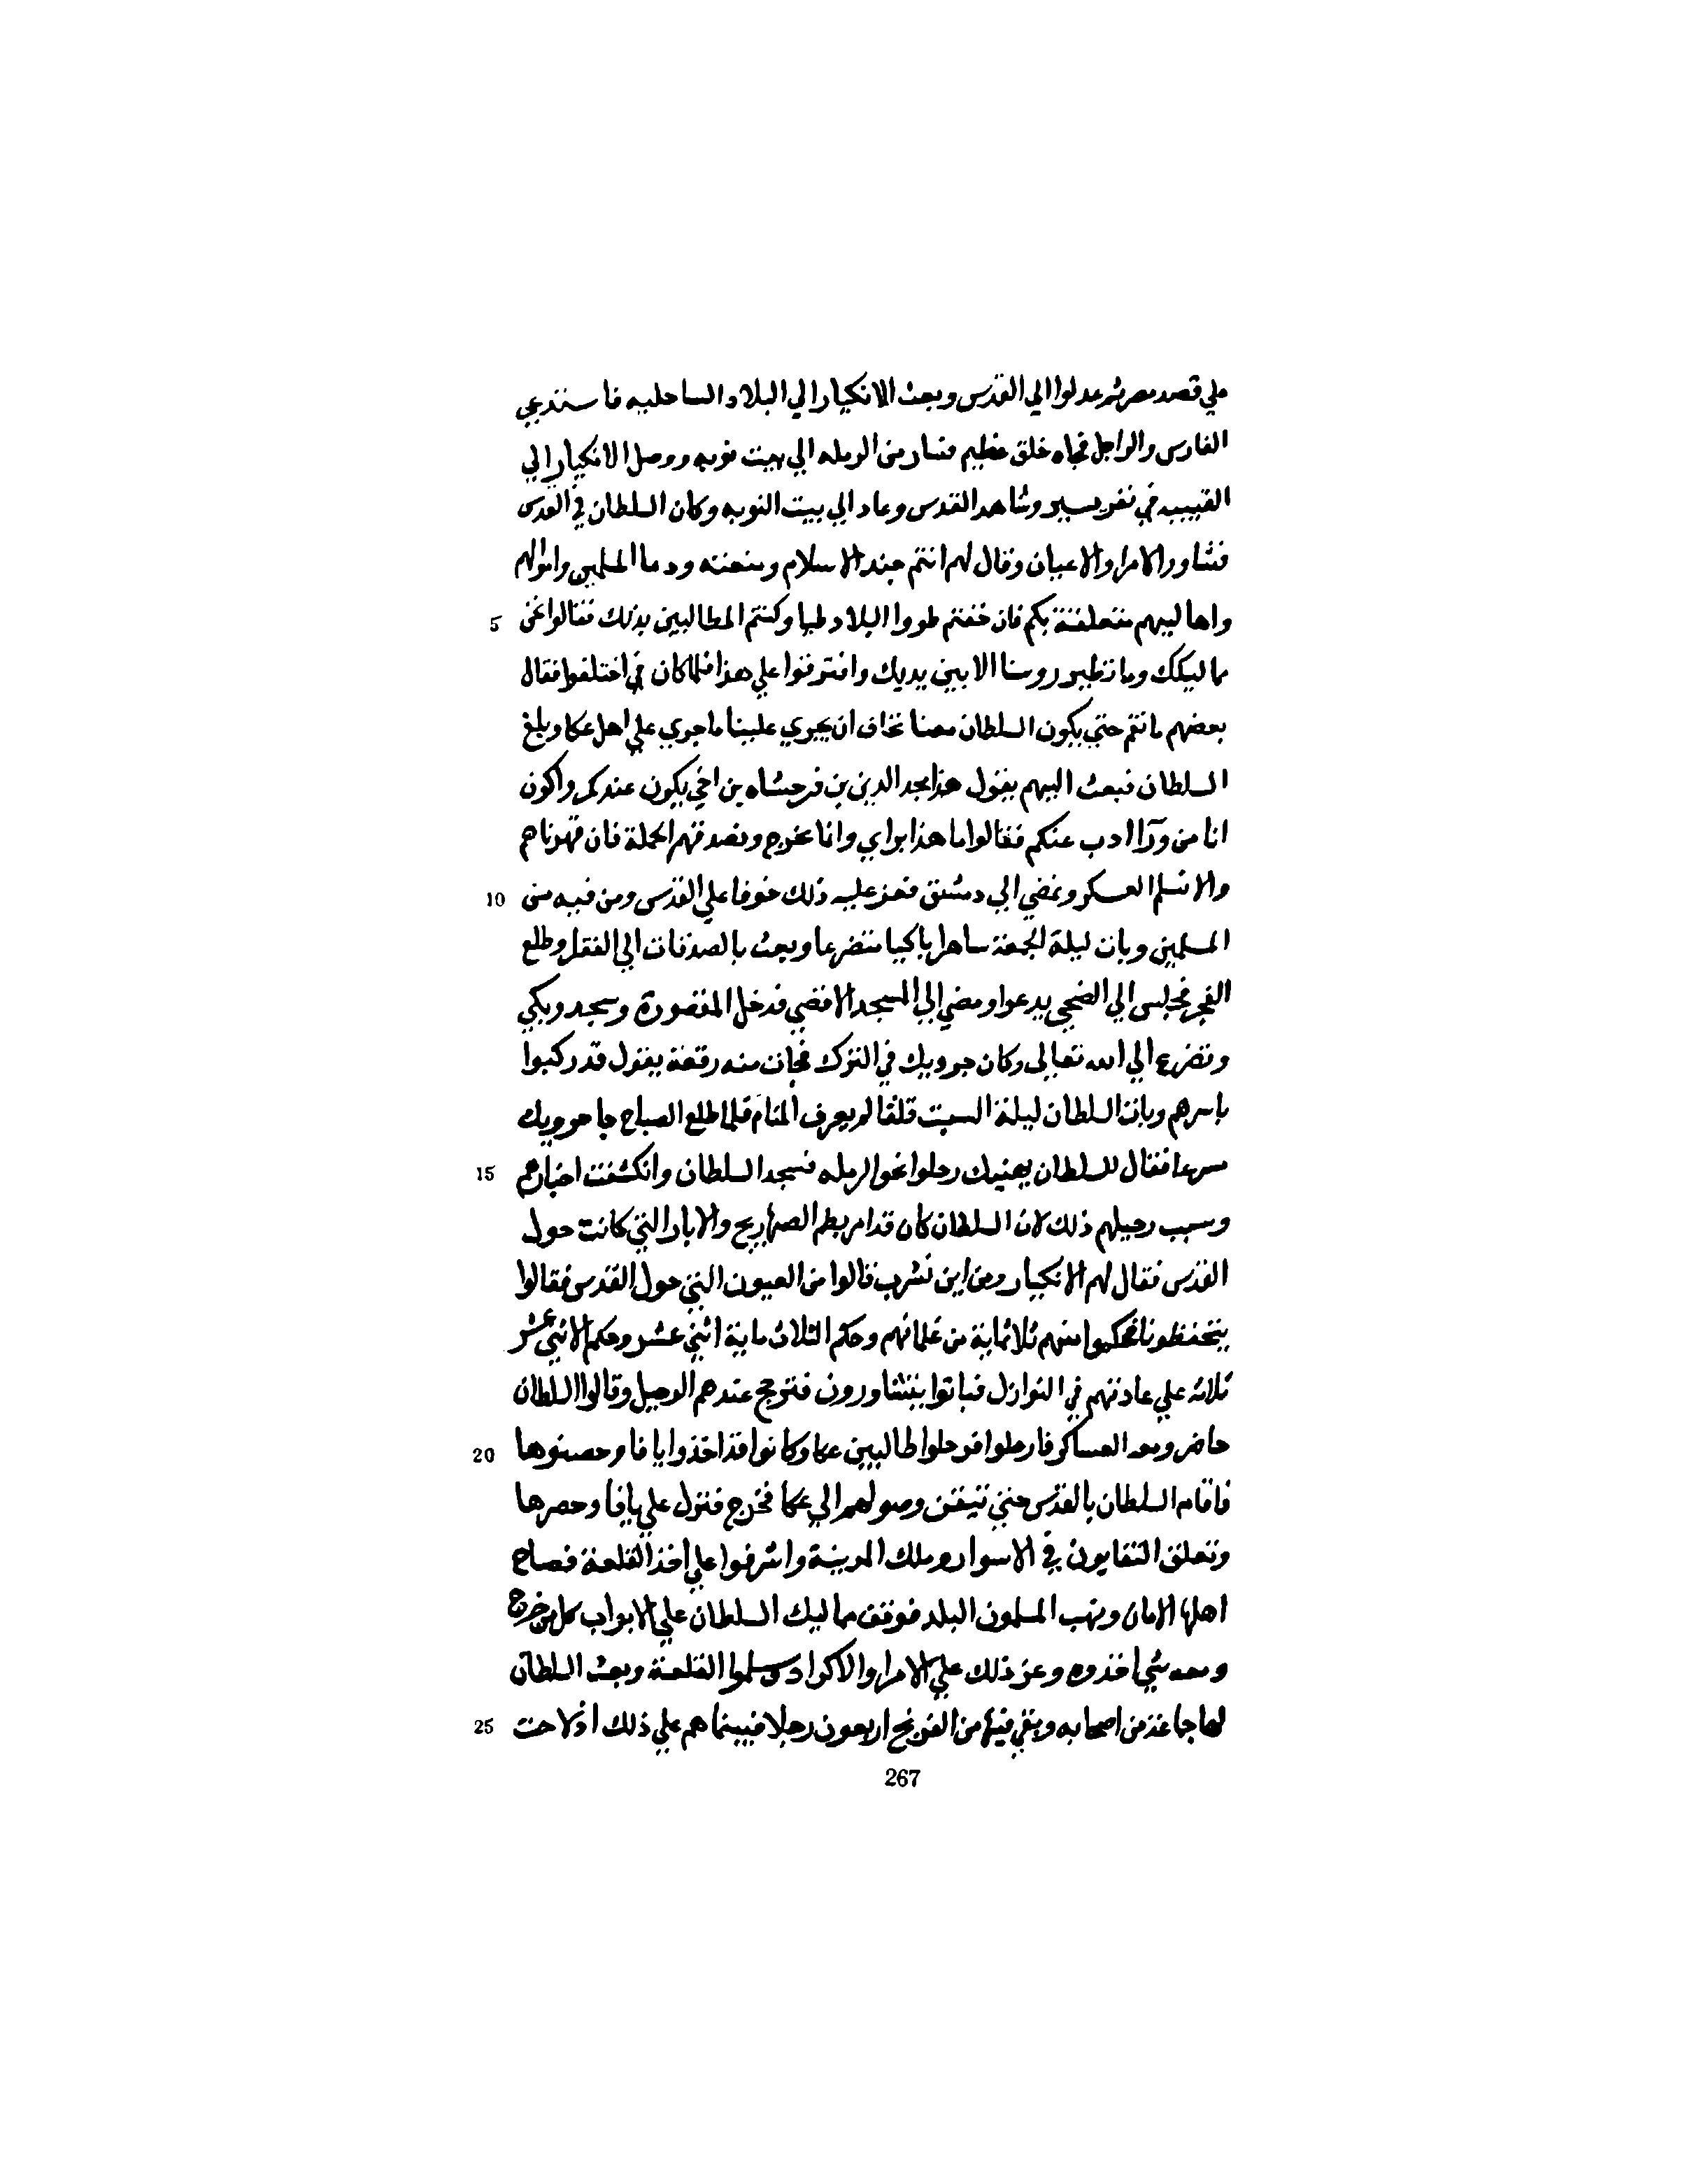 علي قصد مصر ثم عدلوا الي القدس وبعث الانكيار الي البلاد الساحليه فاستدعي
الفارس والراجل فجاه خلق عظيم فسار من الرمله الي بيت نوبه ووصل الانكيار الي
القبيبه في نفر يسير وشاهد القدس وعاد الي بيت النوبه وكان السلطان في القدس
فشاور الامرا والاعيان وقال لهم انتم جند الاسلام ومنعته ودما المسلمين واموالهم
واهاليهم متعلقة بكم فان ضعفتم طووا البلاد طيا وكنتم المطالبين بذلك فقالوا نحن 5
مماليكك وما تطير روسنا الا بين يديك وافترقوا علي هذا فلما كان في اختلفوا فقال
بعضهم ما نقم حتي يكون السلطان معنا نخاف ان يجري علينا ما جري علي اهل عكا وبلغ
السلطان فبعث اليهم يقول هذا مجد الدين بن فرخشاه بن اخي يكون عندكم واكون
انا من ورآ ادب عنكم فقالوا ما هذا براي وانا نخرج ونصدقهم الحملة فان قهرناهم
والا نسلم العسكر ونمضي الي دمشق فعز عليه ذلك خوفا علي القدس ومن فيه من 10
المسلمين وبات ليلة الجمعة ساهرا باكيا متضرعا وبعث بالصدقات الي الفقرا وطلع
الفجر فجلس الي الضحي يدعوا ومضي الي المسجد الاقصي فدخل المقصورة وسجد وبكي
وتضرع الي الله تعالي وكان جرديك في اليزك فجات منه رقعة يقول قد ركبوا
باسرهم وبات السلطان ليلة السبت قلقا لم يعرف المنام فلما طلع الصباح جا جرديك
مسرعا فقال للسلطان يهنيك رحلوا نحو الرمله فسجد السلطان وانكشفت اخبارهم 15
وسبب رحيلهم ذلك لان السلطان كان قد امر بطم الصهاريج والابار التي كانت حول
القدس فقال لهم الانكيار ومن اين نشرب قالوا من العيون التي حول القدس فقالوا
يتخفظونا فحكموا منهم ثلاثماية من علمائهم وحكم الثلاث ماية اثني عشر وحكم الاثني عشر
ثلاثه علي عادتهم في النوازل فباتوا يتشاورون فترجح عندهم الرحيل وقالوا السلطان
حاضر ومعه العساكر فارحلوا فرحلوا طالبين عكا وكانوا قد اخذوا يافا وحصنوها 20
فاقام السلطان بالقدس حتي تيقن وصولهم الي عكا فخرج فنزل علي يافا وحصرها
وتعلق النقابون في الاسوار وملك المدينة واشرفوا علي اخذ القلعة فصاح
اهلها الامان ونهب المسلمون البلد فوقف مماليك السلطان علي الابواب كل من خرج
ومعه شي اخذوه وعز ذلك علي الامرا والاكراد وسلموا القلعة وبعث السلطان
لها جماعة من اصحابه وبقي فيها من الفرنج اربعون رجلا فبينما هم علي ذلك اذ لاحت 25
267